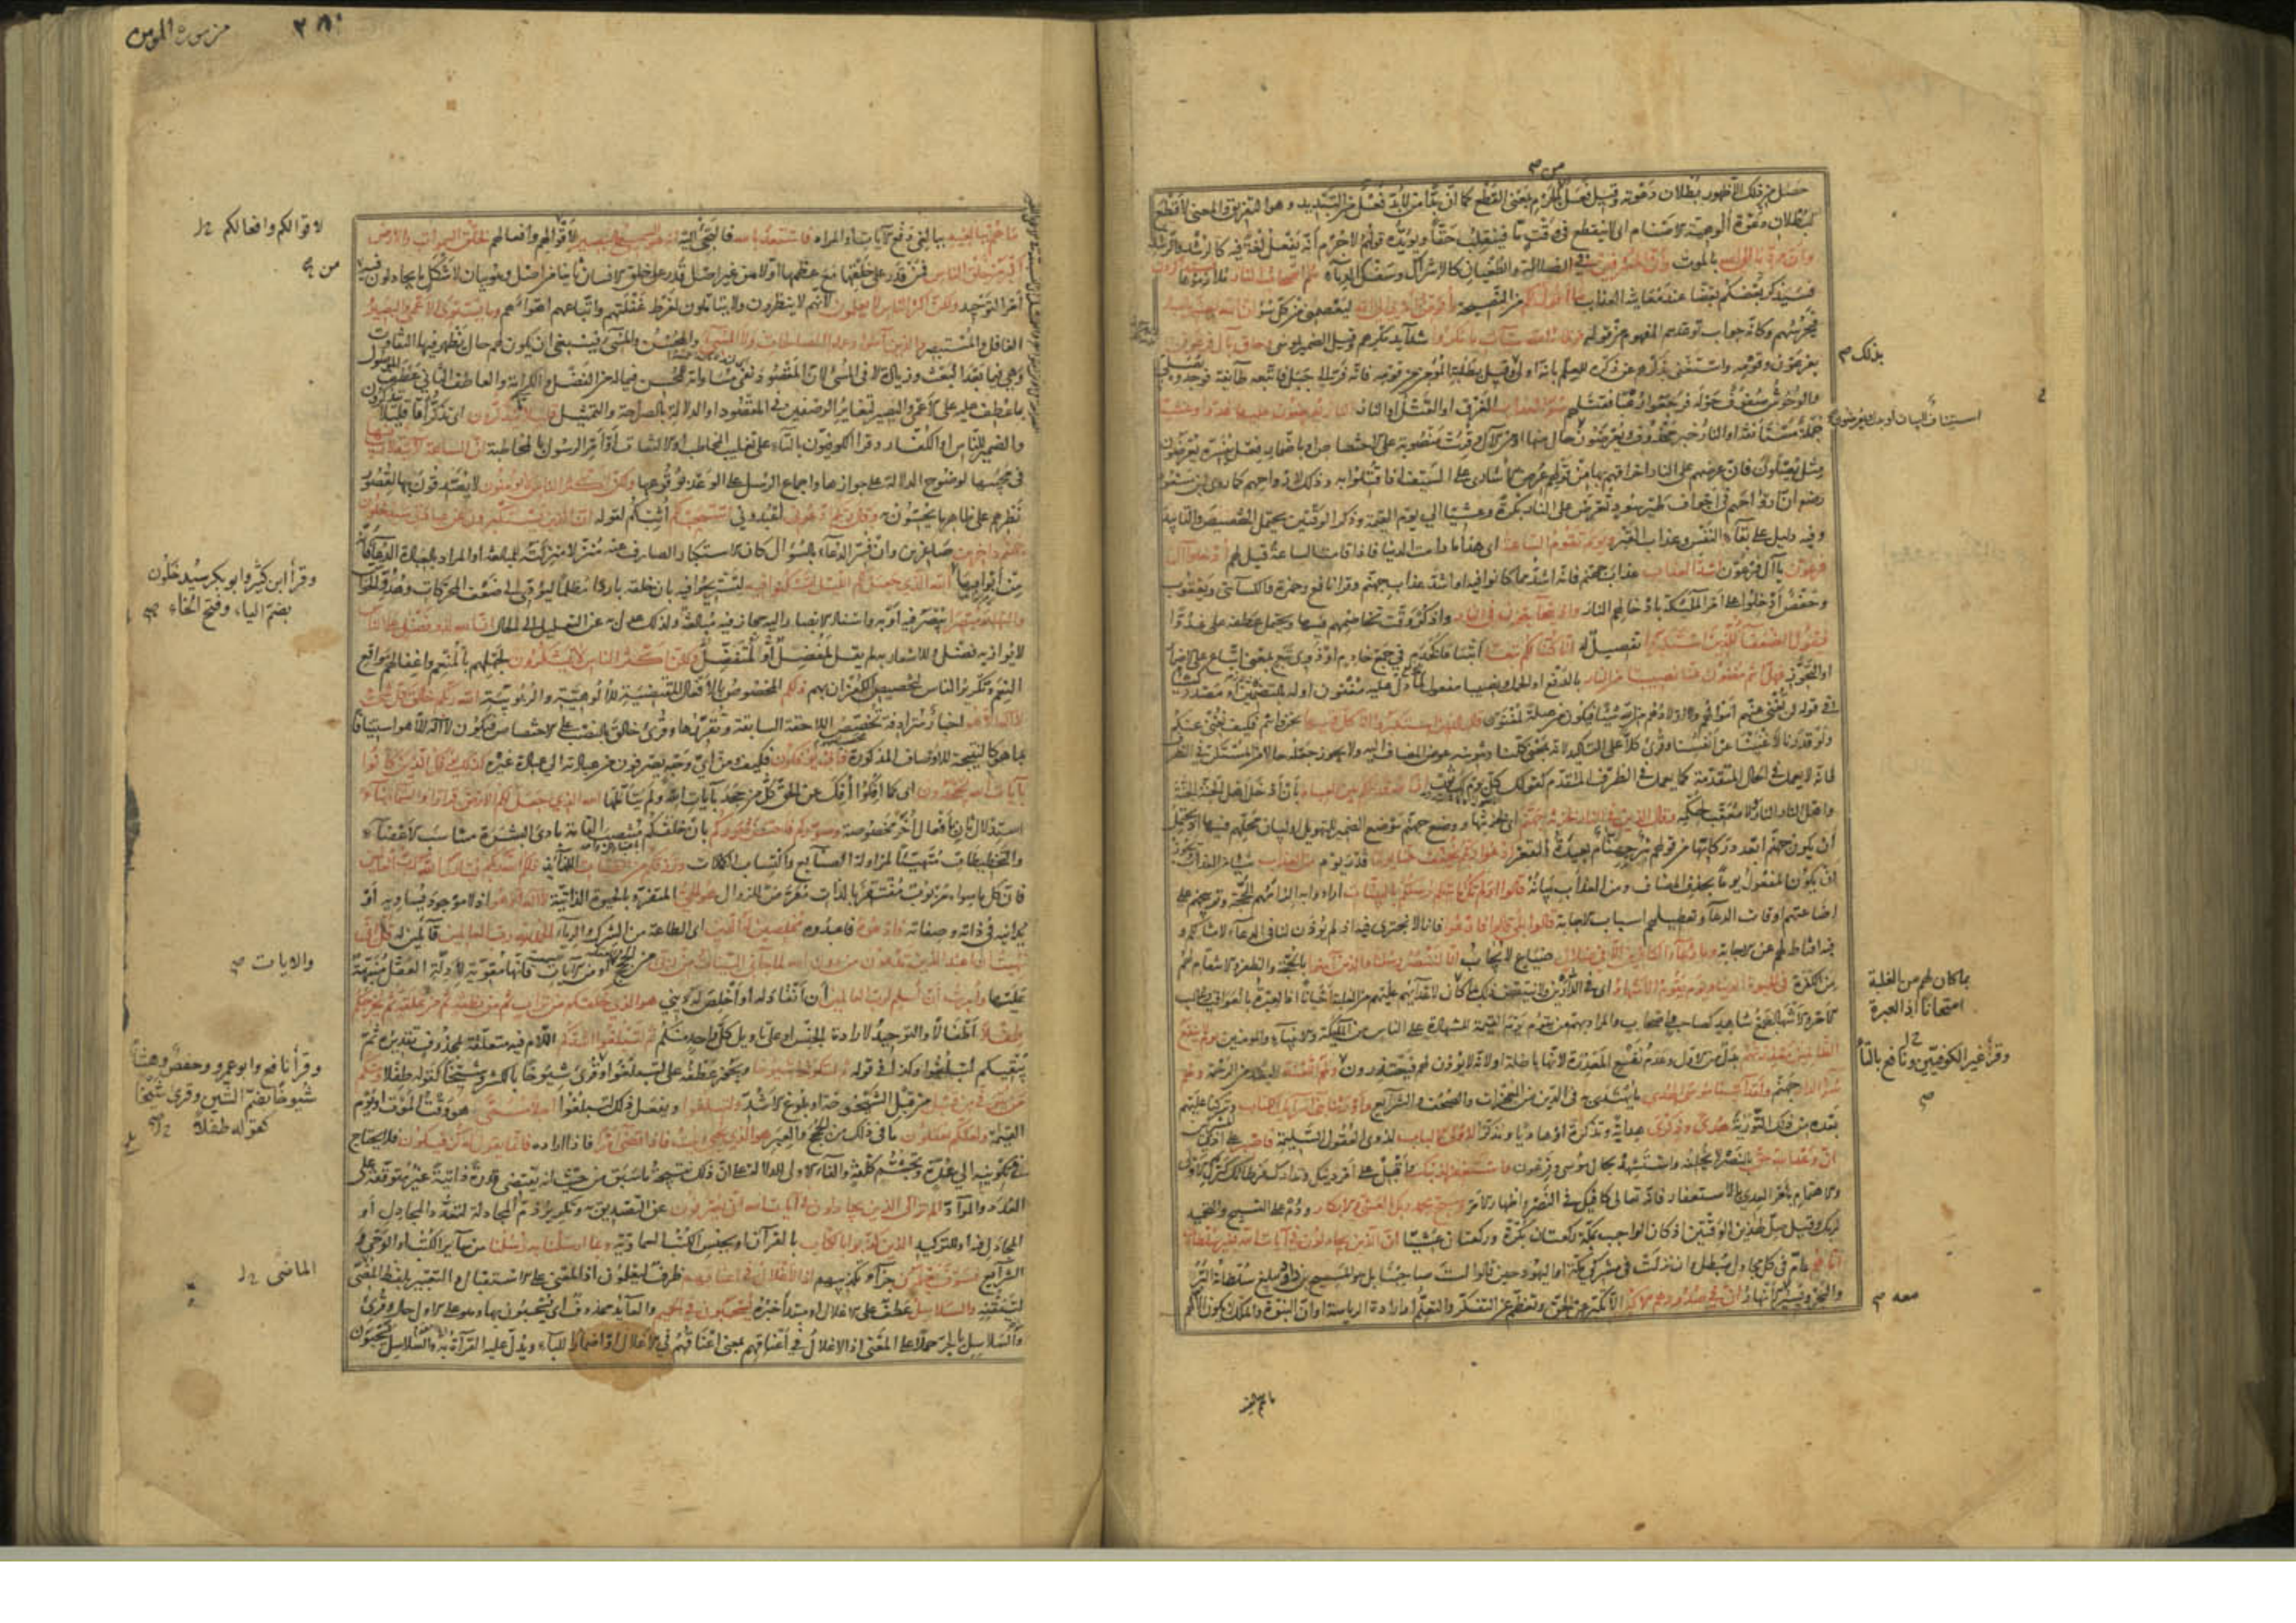 حصل من ذلك إلا ظهور بطلان دعوته وقيل فعل من الجرم بمعنى القطع كما أن بدا من لا بد فعل من التبديد وهو التفريق والمعنى لا قطع
لبطلان دعوة ألوهية الأصنام أي لا ينقطع في وقت ما فينقلب حقا ويؤيده قولهم لا جرم أنه يفعل لغة فيه كالرشد والرشد
وأن مردنا إلى الله بالموت وأن المسرفين في الضلالة والطغيان كالإشراك وسفك الدماء هم أصحاب النار ملازموها
فسيذكر بعضكم بعضا عند معاينة العذاب ما أقول لكم من النصيحة وأفوض أمري إلى الله ليعصمني من كل سوء إن الله بصير بالعباد
فيحرسهم وكأنه جواب توعدهم المفهوم من قوله فوقاه الله سيئات ما مكروا شدائد مكرهم وقيل الضمير لموسى وحاق بآل فرعون
بفرعون وقومه واستغنى بذكرهم عن ذكره للعلم بأنه أولى وقيل بطلبة المؤمن من قومه فإنه فر إلى جبل فاتبعه طائفة فوجدوه يصلي
والوحوش صفوف حوله فرجعوا رعبا فقتلهم سوء العذاب الغرق أو القتل أو النار النار يعرضون عليها غدوا وعشيا
جملة مستأنفة أو النار خبر محذوف ويعرضون حال منها أو من الآل وقرئت منصوبة على الاختصاص أو بإضمار فعل يفسره يعرضون
مثل يصلون فإن عرضهم على النار إحراقهم بها من قولهم عرض الأسارى على السيف إذا قتلوا به وذلك لأرواحهم كما روى ابن مسعود
رضه أن أرواحهم في أجواف طير سود تعرض على النار بكرة وعشيا إلى يوم القيمة وذكر الوقتين يحتمل التخصيص والتأبيد
وفيه دليل على بقاء النفس وعذاب القبر ويوم تقوم الساعة أي هذا ما دامت الدنيا فإذا قامت الساعة قيل لهم أدخلوا آل
فرعون يا آل فرعون أشد العذاب عذاب جهنم فإنه أشد مما كانوا فيه أو أشد عذاب جهنم وقرأ نافع وحمزة والكسائي ويعقوب
وحفص أدخلوا على أمر الملئكة بإدخالهم النار وإذ يتحاجون في النار واذكر وقت تخاصمهم فيها ويحتمل عطفه على غدوا
فيقول الضعفاء للذين استكبروا تفصيل له إنا كنا لكم تبعا أتباعا كخدم في جمع خادم أو ذوي تبع بمعنى أتباع على الإضمار
أو التجوز فهل أنتم مغنون عنا نصيبا من النار بالدفع أو الحمل ونصيبا مفعول لما دل عليه مغنون أو له بالتضمين أو مصدر
في قوله لن تغني عنهم أموالهم ولا أولادهم من الله شيئا فيكون من صلة لمغنون قال الذين استكبروا إنا كل فيها نحن وأنتم فكيف نغني عنكم
ولو قدرنا لأغنينا عن أنفسنا وقرئ كلا على التأكيد لأنه بمعنى كلنا وتنوينه عوض المضاف إليه ولا يجوز جعله حالا من المستكن في الظرف
فإنه لا يعمل في الحال المتقدمة كما يعمل في الظرف المتقدم كقولك كل يوم لك ثوب إن الله قد حكم بين العباد بأن أدخل أهل الجنة الجنة
وأهل النار النار لا معقب لحكمه وقال الذين في النار لخزنة جهنم أي لخزنتها ووضع جهنم موضع الضمير للتهويل أو لبيان محلهم فيها إذ يحتمل
أن يكون جهنم أبعد دركاتها من قولهم بئر جهنام بعيدة القعر ادعوا ربكم يخفف عنا يوما قدر يوم من العذاب شيئا من العذاب
أن يكون المفعول يوما بحذف المضاف ومن العذاب بيانه قالوا أولم تك تأتيكم رسلكم بالبينات أرادوا به إلزامهم للحجة وتوبيخهم على
إضاعتهم أوقات الدعاء وتعطيلهم أسباب الإجابة قالوا بلى قالوا فادعوا فإنا لا نجترئ فيه إذ لم يؤذن لنا في الدعاء لأمثالكم و
فيه إقناط لهم عن الإجابة وما دعاء الكافرين إلا في ضلال ضياع لا يجاب إنا لننصر رسلنا والذين آمنوا بالحجة والظفر والانتقام لهم
من الكفرة في الحيوة الدنيا ويوم يقوم الأشهاد أي في الدارين ولا ينتقض ذلك بما كان لأعدائهم عليهم من الغلبة أحيانا إذ العبرة بالعواقب وغالب
الأمر والأشهاد جمع شاهد كصاحب وأصحاب والمراد بهم من يقوم يوم القيمة للشهادة على الناس من الملئكة والأنبياء والمؤمنين يوم لا ينفع
الظالمين معذرتهم بدل من الأول وعدم نفع المعذرة لأنها باطلة أو لأنه لا يؤذن لهم فيعتذرون ولهم اللعنة البعد من الرحمة ولهم
سوء الدار جهنم ولقد آتينا موسى الهدى ما يهتدى به في الدين من المعجزات والصحف والشرائع وأورثنا بني إسرائيل الكتاب وتركنا عليهم
بعده من ذلك التورية هدى وذكرى هداية وتذكرة أو هاديا ومذكرا لأولي الألباب لذوي العقول السليمة فاصبر على أذى
إن وعد الله حق بالنصر لا يخلفه واستشهد بحال موسى وفرعون واستغفر لذنبك وأقبل على أمر دينك وتدارك فرطاتك كترك الأولى
والاهتمام بأمر العدى بالاستغفار فإنه تعالى كافيك في النصر وإظهار الأمر وسبح بحمد ربك بالعشي والإبكار ودم على التسبيح والتحميد
لربك وقيل صل لهذين الوقتين إذ كان الواجب بمكة ركعتان بكرة وركعتان عشيا إن الذين يجادلون في آيات الله بغير سلطان
أتاهم عام في كل مجادل مبطل وإن نزلت في مشركي مكة أو اليهود حين قالوا لست صاحبنا بل هو المسيح بن داود يبلغ سلطانه البر
والبحر وتسير معه الأنهار إن في صدورهم إلا كبر إلا تكبر عن الحق وتعظم عن التفكر والتعلم أو إرادة الرياسة أو أن النبوة والملك لا يكون إلا لهم
بذلك
استيناف للبيان أو بدل ويعرضون
بما كان لهم من الغلبة
امتحانا إذ العبرة
وقرأ غير الكوفيين ونافع بالتاء
معه
من سورة المؤمن
ما هم ببالغيه ببالغي دفع الآيات أو المراد فاستعذ بالله فالتجئ إليه إنه هو السميع البصير لأقوالهم وأفعالهم لخلق السموات والأرض
أكبر من خلق الناس فمن قدر على خلقها مع عظمها أولا من غير أصل قدر على خلق الإنسان ثانيا من أصل وهو بيان لأشكل ما يجادلون فيه
أمر التوحيد ولكن أكثر الناس لا يعلمون لأنهم لا ينظرون ولا يتأملون لفرط غفلتهم واتباعهم أهواءهم وما يستوي الأعمى والبصير
الغافل والمستبصر والذين آمنوا وعملوا الصالحات ولا المسيء والمحسن والمسيء فينبغي أن يكون لهم حال يظهر فيها التفاوت
وهي فيما بعد البعث وزيادة لا في المسيء لأن المقصود نفي مساواته للمحسن فيما له من الفضل والكرامة والعاطف الثاني عطف الموصول
بما عطف عليه على الأعمى والبصير لتغاير الوصفين في المقصود أو الدلالة بالصراحة والتمثيل قليلا ما يتذكرون أي تذكرا ما قليلا يتذكرون
والضمير للناس أو الكفار وقرأ الكوفيون بالتاء على تغليب المخاطب أو الالتفات أو أمر الرسول بالمخاطبة إن الساعة لآتية لا ريب فيها
في مجيئها لوضوح الدلالة على جوازها وإجماع الرسل على الوعد بوقوعها ولكن أكثر الناس لا يؤمنون لا يصدقون بها لقصور
نظرهم على ظاهر ما يحسون به وقال ربكم ادعوني اعبدوني أستجب لكم أثبكم لقوله إن الذين يستكبرون عن عبادتي سيدخلون
جهنم داخرين صاغرين وإن فسر الدعاء بالسؤال كان الاستكبار الصارف عنه منزلا منزلته للمبالغة أو المراد بالعبادة الدعاء فإنه
من أبوابها الله الذي جعل لكم الليل لتسكنوا فيه لتستريحوا فيه بأن خلقه باردا مظلما ليؤدي إلى ضعف الحركات وهدو الحواس
والنهار مبصرا يبصر فيه أو به وإسناد الإبصار إليه مجاز فيه مبالغة ولذلك عدل به عن التعليل إلى الحال إن الله لذو فضل على الناس
لا يوازيه فضل وللإشعار به لم يقل لمفضل أو لمتفضل ولكن أكثر الناس لا يشكرون لجهلهم بالمنعم وإغفالهم مواقع
النعم وتكرير الناس لتخصيص الكفران بهم ذلكم المخصوص بالأفعال المقتضية للألوهية والربوبية الله ربكم خالق كل شيء
لا إله إلا هو أخبار مترادفة تخصص اللاحقة السابقة وتقررها وقرئ خالق بالنصب على الاختصاص فيكون لا إله إلا هو استينافا
بما هو كالنتيجة للأوصاف المذكورة فأنى تؤفكون فكيف ومن أي وجه تصرفون من عبادته إلى عبادة غيره كذلك يؤفك الذين كانوا
بآيات الله يجحدون أي كما أفكوا أفك عن الحق كل من جحد بآيات الله ولم يتأملها الله الذي جعل لكم الأرض قرارا والسماء بناء
استدلال ثان بأفعال أخر مخصوصة وصوركم فأحسن صوركم بأن خلقكم منتصب القامة بادي البشرة متناسب الأعضاء
والتخطيطات متهيئا لمزاولة الصنايع واكتساب الكمالات ورزقكم من الطيبات اللذائذ ذلكم الله ربكم فتبارك الله رب العالمين
فإن كل ما سواه مربوب مفتقر بالذات معرض للزوال هو الحي المتفرد بالحيوة الذاتية لا إله إلا هو إذ لا موجود يساويه أو
يدانيه في ذاته وصفاته فادعوه فاعبدوه مخلصين له الدين أي الطاعة من الشرك والرياء الحمد لله رب العالمين قائلين له قل إني
نهيت أن أعبد الذين تدعون من دون الله لما جاءني البينات من ربي من الحجج أو من الآيات فإنها مقوية لأدلة العقل منبهة
عليها وأمرت أن أسلم لرب العالمين أن أنقاد له أو أخلص له ديني هو الذي خلقكم من تراب ثم من نطفة ثم من علقة ثم يخرجكم
طفلا أطفالا والتوحيد لإرادة الجنس أو على تأويل كل واحد منكم ثم لتبلغوا أشدكم اللام فيه متعلقة بمحذوف تقديره ثم
يبقيكم لتبلغوا وكذا في قوله ثم لتكونوا شيوخا ويجوز عطفه على لتبلغوا وقرئ شيوخا بالكسر وشيخا كقوله طفلا ومنكم
من يتوفى من قبل من قبل الشيخوخة أو بلوغ الأشد ولتبلغوا ويفعل ذلك لتبلغوا أجلا مسمى هو وقت الموت أو يوم
القيمة ولعلكم تعقلون ما في ذلك من الحجج والعبر هو الذي يحيي ويميت فإذا قضى أمرا فإذا أراده فإنما يقول له كن فيكون فلا يحتاج
في تكوينه إلى عدة وتجشم كلفة والفاء الأولى للدلالة على أن ذلك نتيجة ما سبق من حيث إنه يقتضي قدرة ذاتية غير متوقفة على
العدد والمواد ألم تر إلى الذين يجادلون في آيات الله أنى يصرفون عن التصديق به وتكرير ذم المجادلة لتعدد المجادل أو
المجادل فيه أو للتوكيد الذين كذبوا بالكتاب بالقرآن أو بجنس الكتب السماوية وبما أرسلنا به رسلنا من سائر الكتب أو الوحي و
الشرائع فسوف يعلمون جزاء تكذيبهم إذ الأغلال في أعناقهم ظرف ليعلمون إذ المعنى على الاستقبال والتعبير بلفظ المضي
لتيقنه والسلاسل عطف على الأغلال أو مبتدأ خبره يسحبون في الحميم والعائد محذوف أي يسحبون بها وهو على الأول حال وقرئ
والسلاسل بالجر حملا على المعنى إذ الأغلال في أعناقهم بمعنى أعناقهم في الأغلال أو إضمارا للباء ويدل عليه القراءة به والسلاسل يسحبون
لأقوالكم وأفعالكم
من
وقرأ ابن كثير وأبو بكر سيدخلون
بضم الياء وفتح الخاء
والآيات
وقرأ نافع وأبو عمرو وحفص وهشام
شيوخا بضم الشين وقرئ شيخا
كقوله طفلا
الماضي